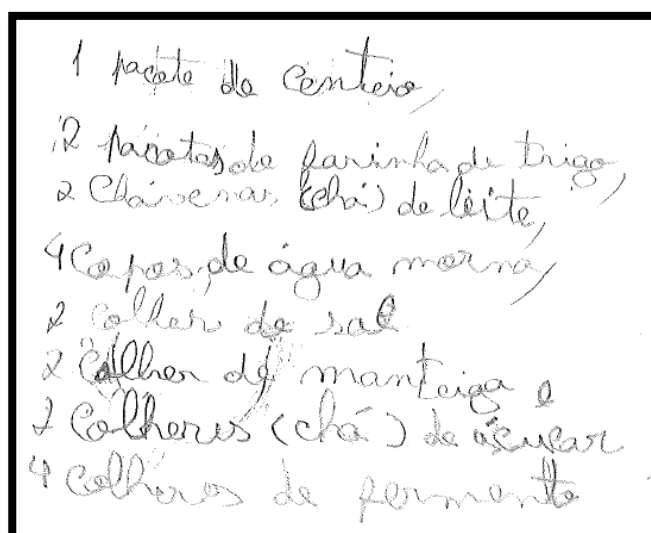 1 pacote de centeio,
2 pacotes de farinha de trigo,
2 Chávenas (chá) de leite,
4 Copos de água morna,
2 Colher de sal
2 Colher de manteiga e
2 Colheres (chá) de açucar
4 Colheres de fermento